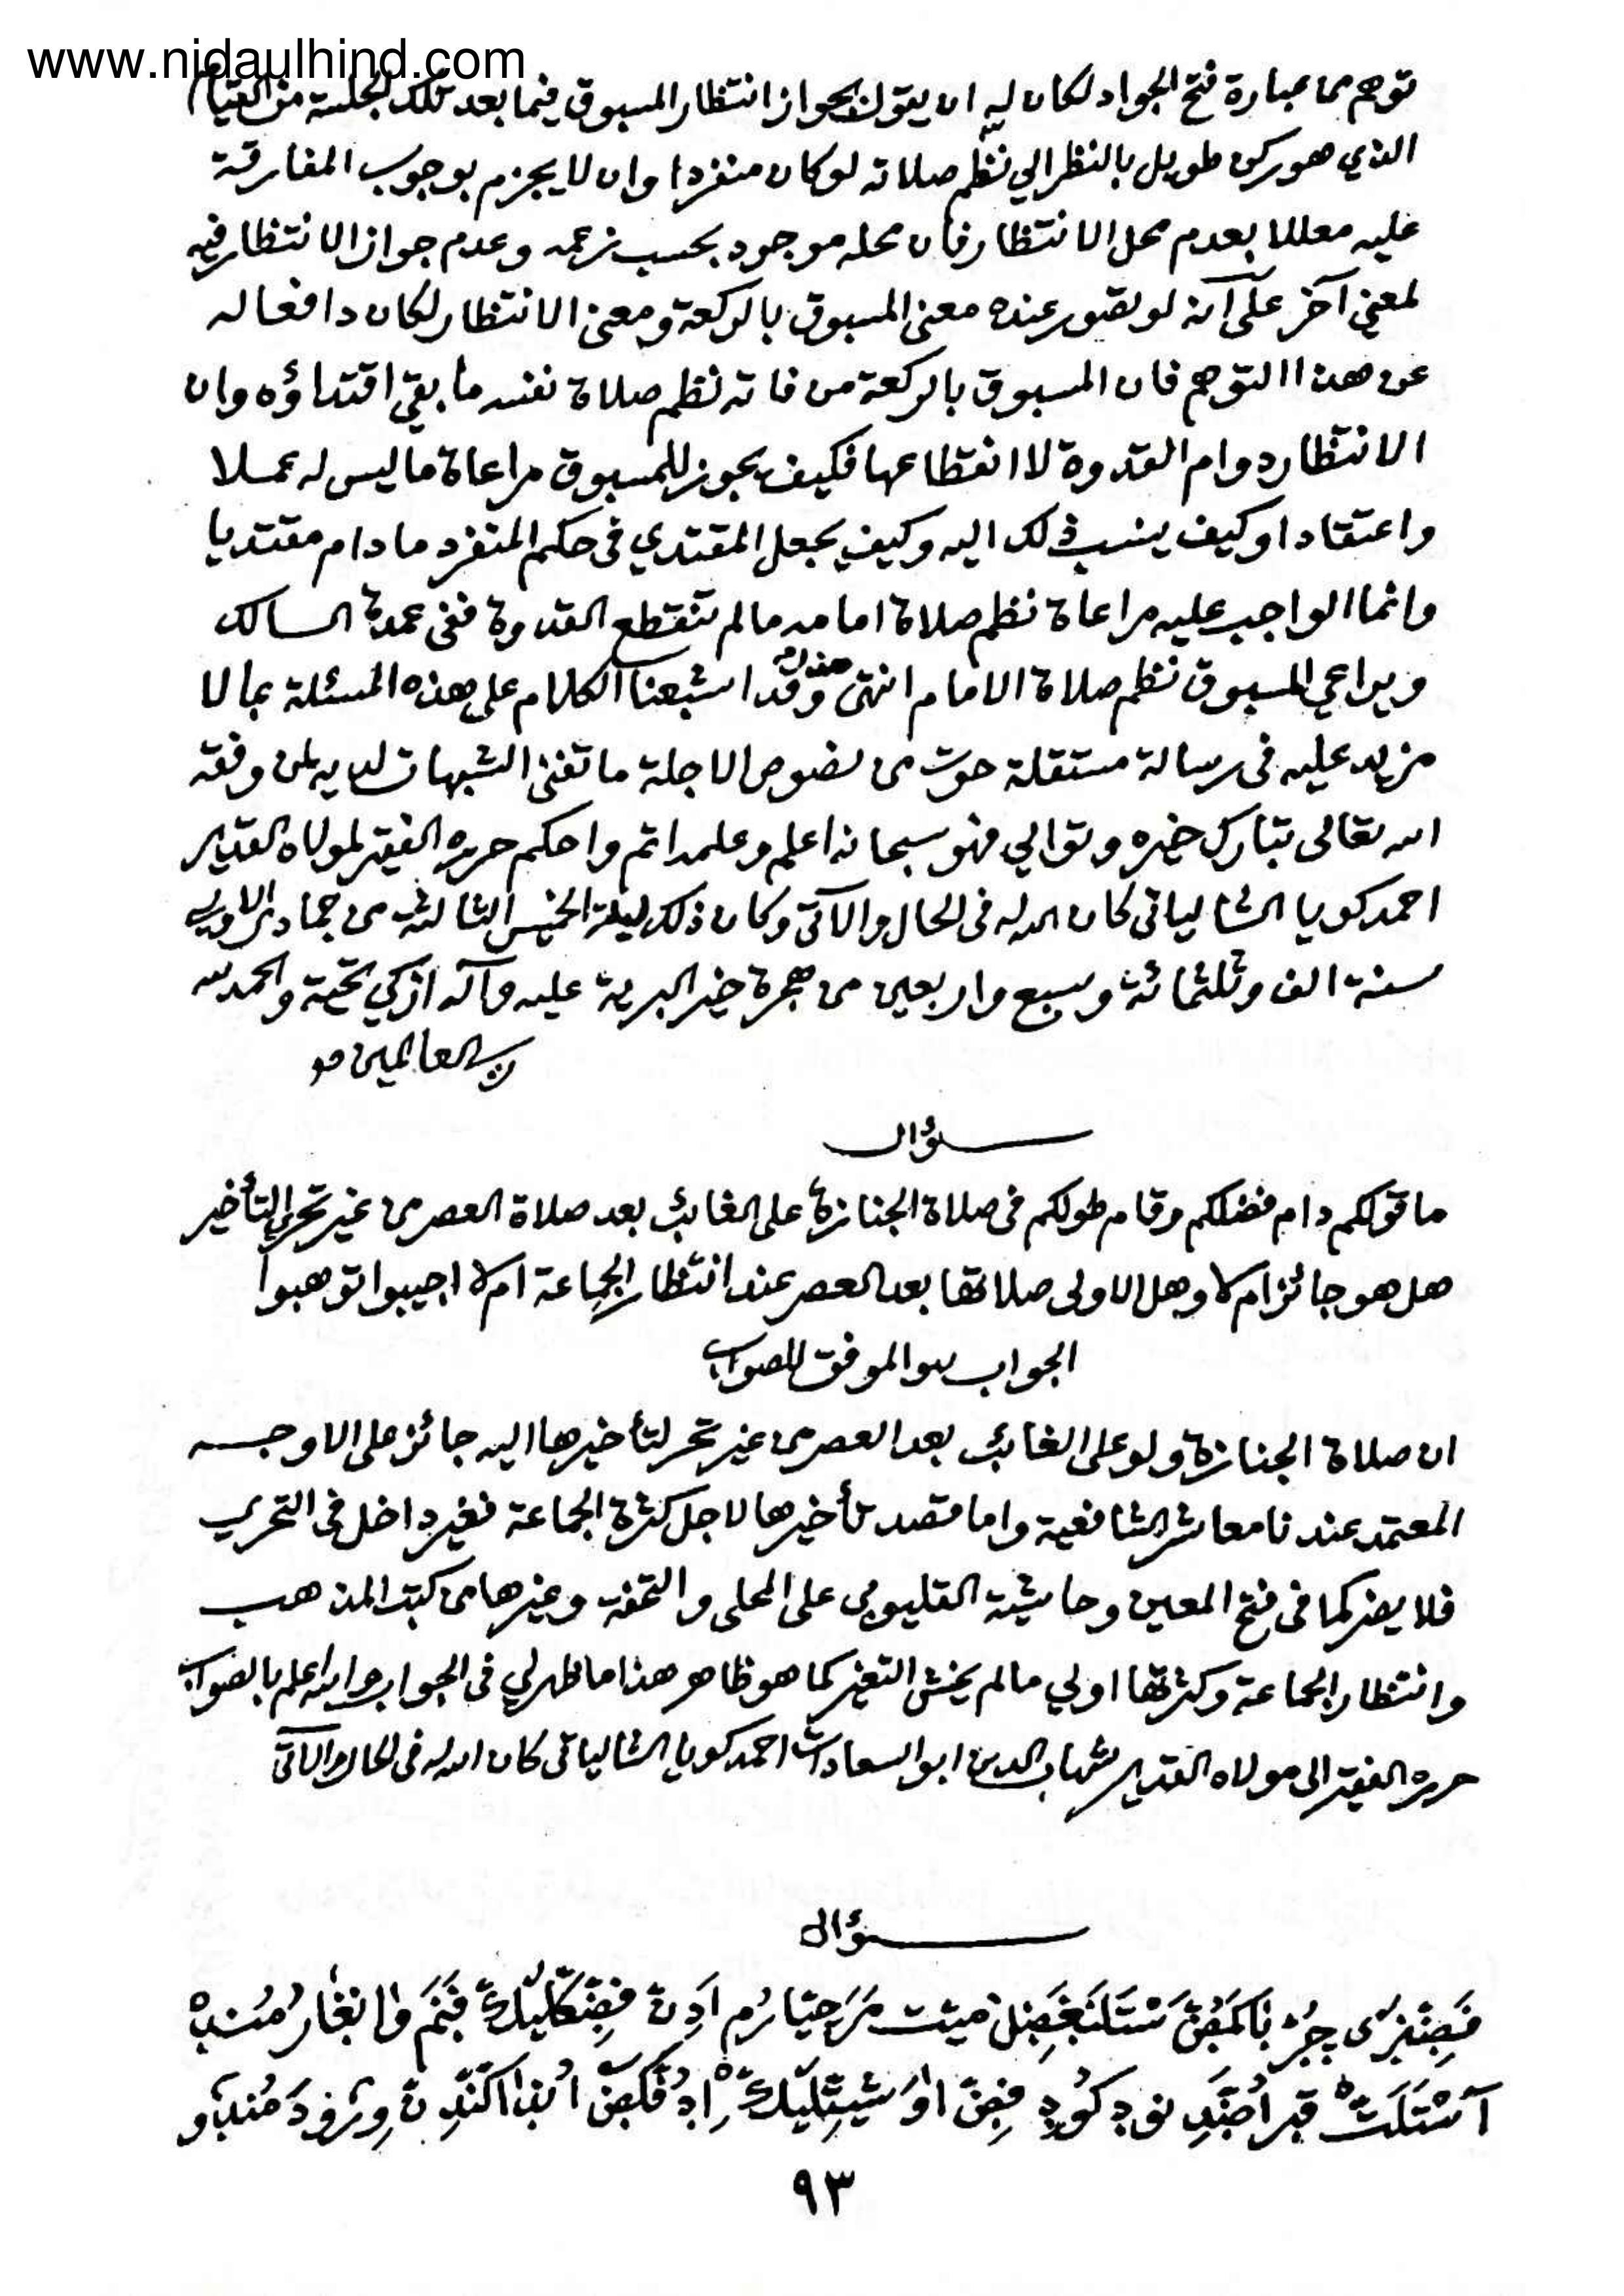 www.nidaulhind.com
توهم من عبارة فتح الجواد لكان له ان يقول بجواز انتظار المسبوق فيما بعد تلك الجلسة من القيام
الذي هو ركن طويل بالنظر الي نظم صلاته لو كان منفردا وان لا يجزم بوجوب المفارقة
عليه معللا بعدم محل الانتظار فان محله موجود بحسب زعمه وعدم جواز الانتظار فيه
لمعنى آخر على انه لو تصور عنده معنى المسبوق بالركعة ومعنى الانتظار لكان دافعا له
عن هذا التوهم فان المسبوق بالركعة من فاته نظم صلاة نفسه ما بقي اقتداؤه وان
الانتظار دوام القدوة لا انقطاعها فكيف يجوز للمسبوق مراعاة ما ليس له عملا
واعتقادا وكيف ينسب ذلك اليه وكيف يجعل المقتدي في حكم المنفرد ما دام مقتديا
وانما الواجب عليه مراعاة نظم صلاة امامه ما لم تنقطع القدوة ففي عمدة السالك
ويراعي المسبوق نظم صلاة الامام انتهى هذا وقد اشبعنا الكلام على هذه المسئلة بما لا
مزيد عليه في رسالة مستقلة حوت من نصوص الاجلة ما تفنى الشبهات لديه لمن وفقه
الله تعالى تبارك خيره وتوالي فهو سبحانه اعلم وعلمه اتم واحكم حرره الفقير لمولاه القدير
احمد كويا الشالياتي كان الله له في الحال والآتي وكان ذلك ليلة الخميس الثالثة من جمادى الاولى
سنة الف وثلثمائة وسبع واربعين من هجرة خير البرية عليه وآله ازكي تحية والحمد لله
رب العالمين
سؤال
ما قولكم دام فضلكم وقام طولكم في صلاة الجنازة على الغائب بعد صلاة العصر من غير تحري التأخير
هل هو جائز ام لا وهل الاولى صلاتها بعد العصر عند انتظار الجماعة ام لا اجيبوا توهبوا
الجواب والله الموفق للصواب
ان صلاة الجنازة ولو على الغائب بعد العصر من غير تحر لتأخيرها اليه جائز على الاوجه
المعتمد عندنا معاشر الشافعية واما قصد تأخيرها لاجل كثرة الجماعة فغير داخل في التحري
فلا يضر كما في فتح المعين وحاشية القليوبي على المحلى والتحفة وغيرها من كتب المذهب
وانتظار الجماعة وكثرتها اولي ما لم يخش التغير كما هو ظاهر هذا ما ظهر لي في الجواب والله اعلم بالصواب
حرره الفقير الى مولاه القدير شهاب الدين ابو السعادات احمد كويا الشالياتي كان الله له في الحال والآتي
سؤال
٩٣